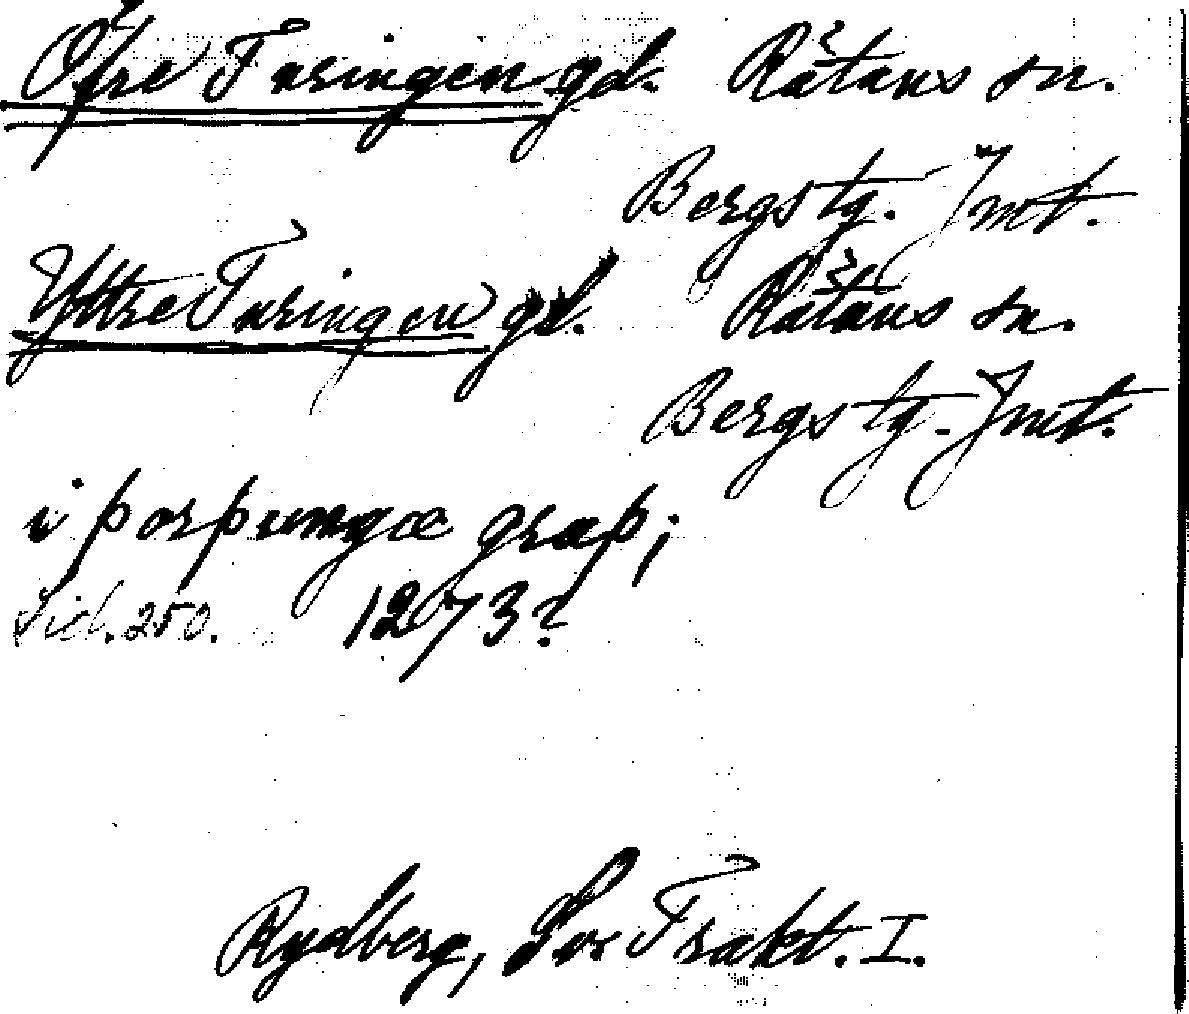 Öfre Turingen gd. Rätans sn.
Bergs tg. Jmt.
Yttre Turingen gd. Rätans sn.
Bergs tg. Jmt.
i þorþumgæ graþ;
Sid. 250. 1273?
Rydberg, Sv. Trakt. I.